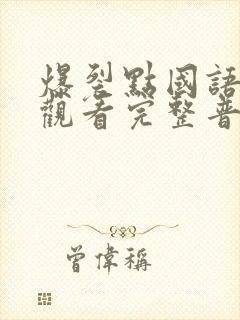 爆裂點國語
觀看完整普
曾偉稱